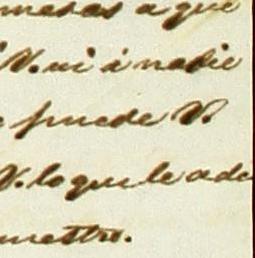 mesas a que
V. ni á nadie
puede V.
V. lo que le ade
muestro.